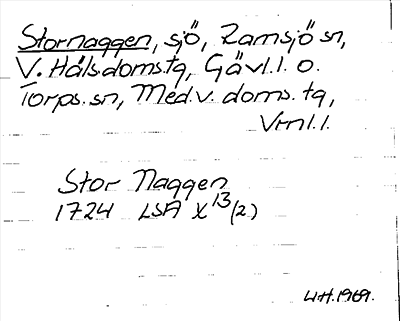 Stornaggen, sjö, Ramsjö sn,
V. Hälsdoms.tg, Gävl.l. o.
Torps.sn, Med.v. doms.tg,
Vrnl.l.
Stor Naggen
1724 LSA X 13/(2)
W.H. 1969.